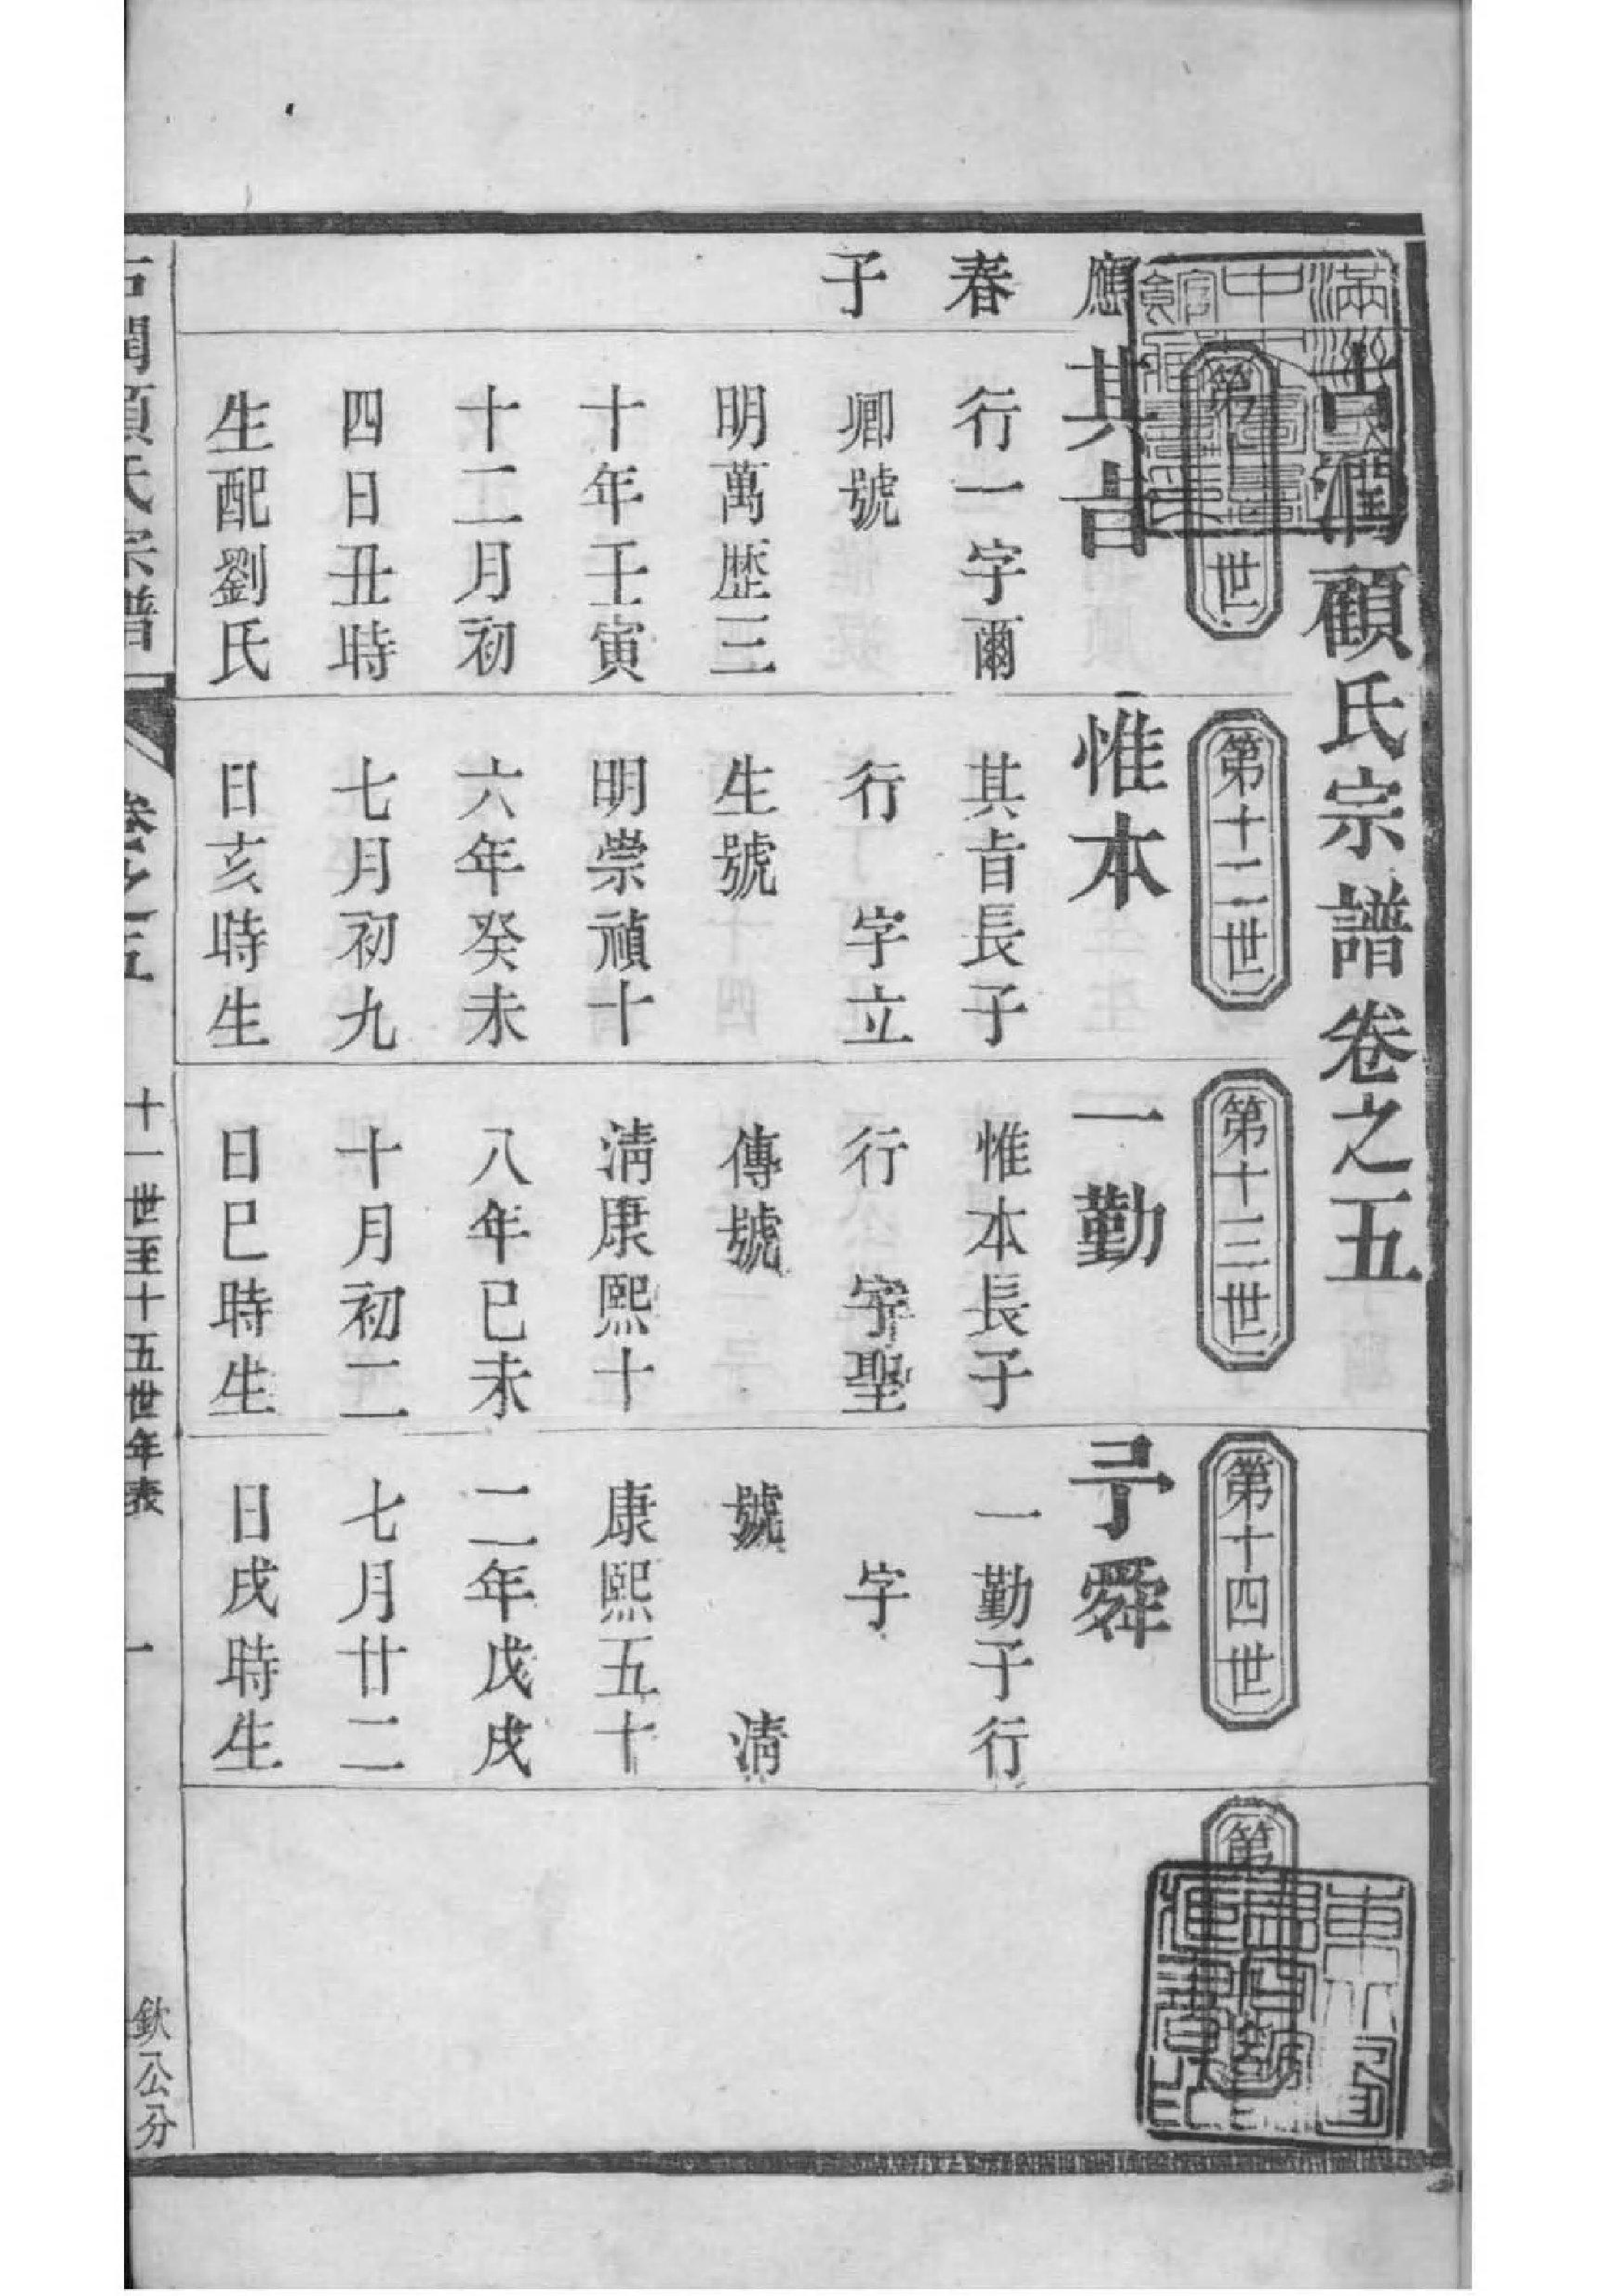 古潤顧氏宗譜卷之五
第十一世
第十二世
第十三世
第十四世
第
應
春
子
其旨
行一字爾
卿號
明萬歷三
十年壬寅
十二月初
四日丑時
生配劉氏
惟本
其旨長子
行　字立
生號
明崇禎十
六年癸未
七月初九
日亥時生
一勤
惟本長子
行　字聖
傳號
清康熙十
八年己未
十月初二
日巳時生
子舜
一勤子行
字
號　　清
康熙五十
二年戊戌
七月廿二
日戌時生
古潤顧氏宗譜
卷之五
十一世至十五世年表
一
欽公分